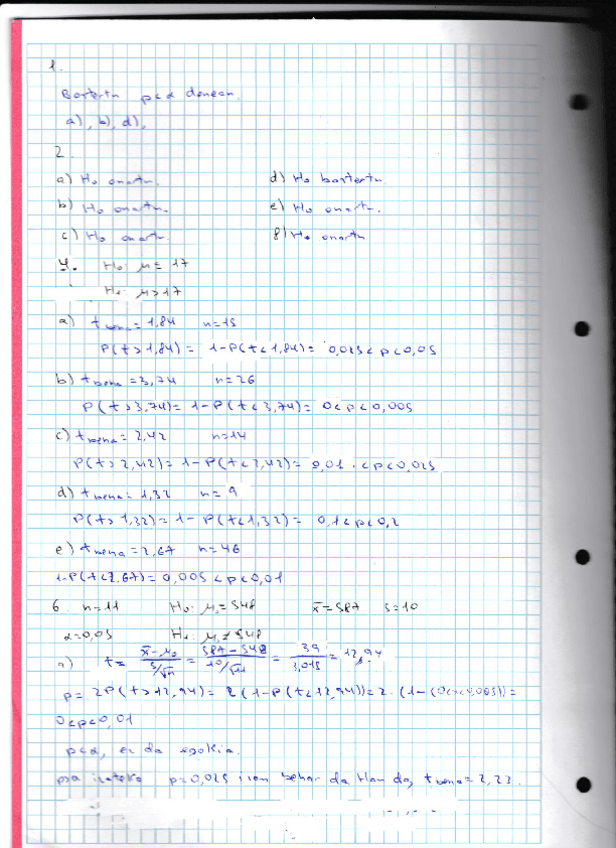 1.
Baztertu p<α denean.
a), b), d),
2.
a) H₀ onartu.
d) H₀ baztertu
b) H₀ onartu.
e) H₀ onartu.
c) H₀ onartu.
f) H₀ onartu
4. H₀: μ = 17
H₁: μ>17
a) t = 1,84 n=15
P(t>1,84) = 1-P(t<1,84) = 0,025<p<0,05
b) t = 3,74 n=26
P(t>3,74) = 1-P(t<3,74) = 0<p<0,005
c) t = 2,42 n=14
P(t>2,42) = 1-P(t<2,42) = 0,01<p<0,025
d) t = 1,32 n=9
P(t>1,32) = 1-P(t<1,32) = 0,1<p<0,2
e) t = 2,67 n=46
1-P(t<2,67) = 0,005<p<0,01
6. n=11 H₀: μ = 548 x̄=587 s=10
α=0,05 H₁: μ ≠ 548
a) t = (x̄-μ₀)/(s/√n) = (587-548)/(10/√11) = 39/3,015 = 12,94
p = 2P(t>12,94) = 2(1-P(t<12,94)) = 2·(1-(0<p<0,005)) =
0<p<0,01
p<α, ez da egokia.
izateko p=0,025 izan behar da. Hau da, t = 2,23.